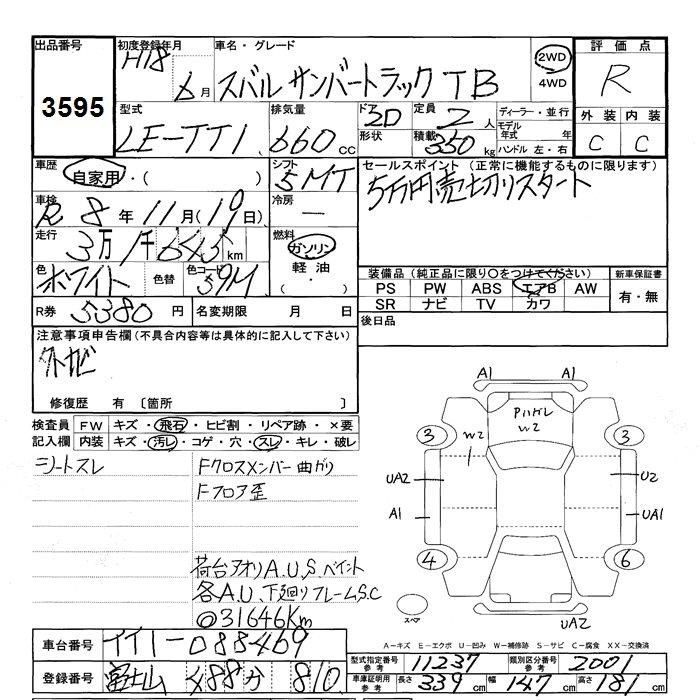 出品番号
3595
初度登録年月
H18 6月
車名・グレード
スバル サンバートラック TB
2WD
4WD
評価点
R
型式
LE-TT1
排気量
660 cc
ドア 2D
形状
定員 2人
積載 350 kg
ディーラー・並行
モデル年式 年
ハンドル 左・右
外装 内装
C C
車歴
自家用・( )
シフト
5MT
セールスポイント (正常に機能するものに限ります)
5万円売切リスタート
車検
R 8年11月(19日)
冷房
―
走行
3万1千645km
燃料
ガソリン
軽油
・( )
色
ホワイト
色替
色コード
59M
装備品 (純正品に限り○をつけてください)
PS PW ABS エアB AW
SR ナビ TV カワ
新車保証書
有・無
R券 5380円
名変期限 月 日
後日品
注意事項申告欄 (不具合内容等は具体的に記入して下さい)
外サビ
修復歴 有〔箇所 〕
検査員記入欄
FW キズ・飛石・ヒビ割・リペア跡・×要
内装 キズ・汚レ・コゲ・穴・スレ・キレ・破レ
シートスレ
Fクロスメンバー曲がり
Fフロア歪
荷台アオリA.U.S.ペイント
各A.U.下廻りフレームS.C
@31646Km
A1 A1
Pハガレ
W2
W2
3 3
UA2 U2
A1 UA1
4 6
スペア
UA2
A-キズ E-エクボ U-凹み W-補修跡 S-サビ C-腐食 XX-交換済
車台番号
TT1-088469
型式指定番号 参考 11237
類別区分番号 参考 2001
登録番号
富士山 488 810
車庫証明用 参考 長さ 339cm 幅 147cm 高さ 181cm